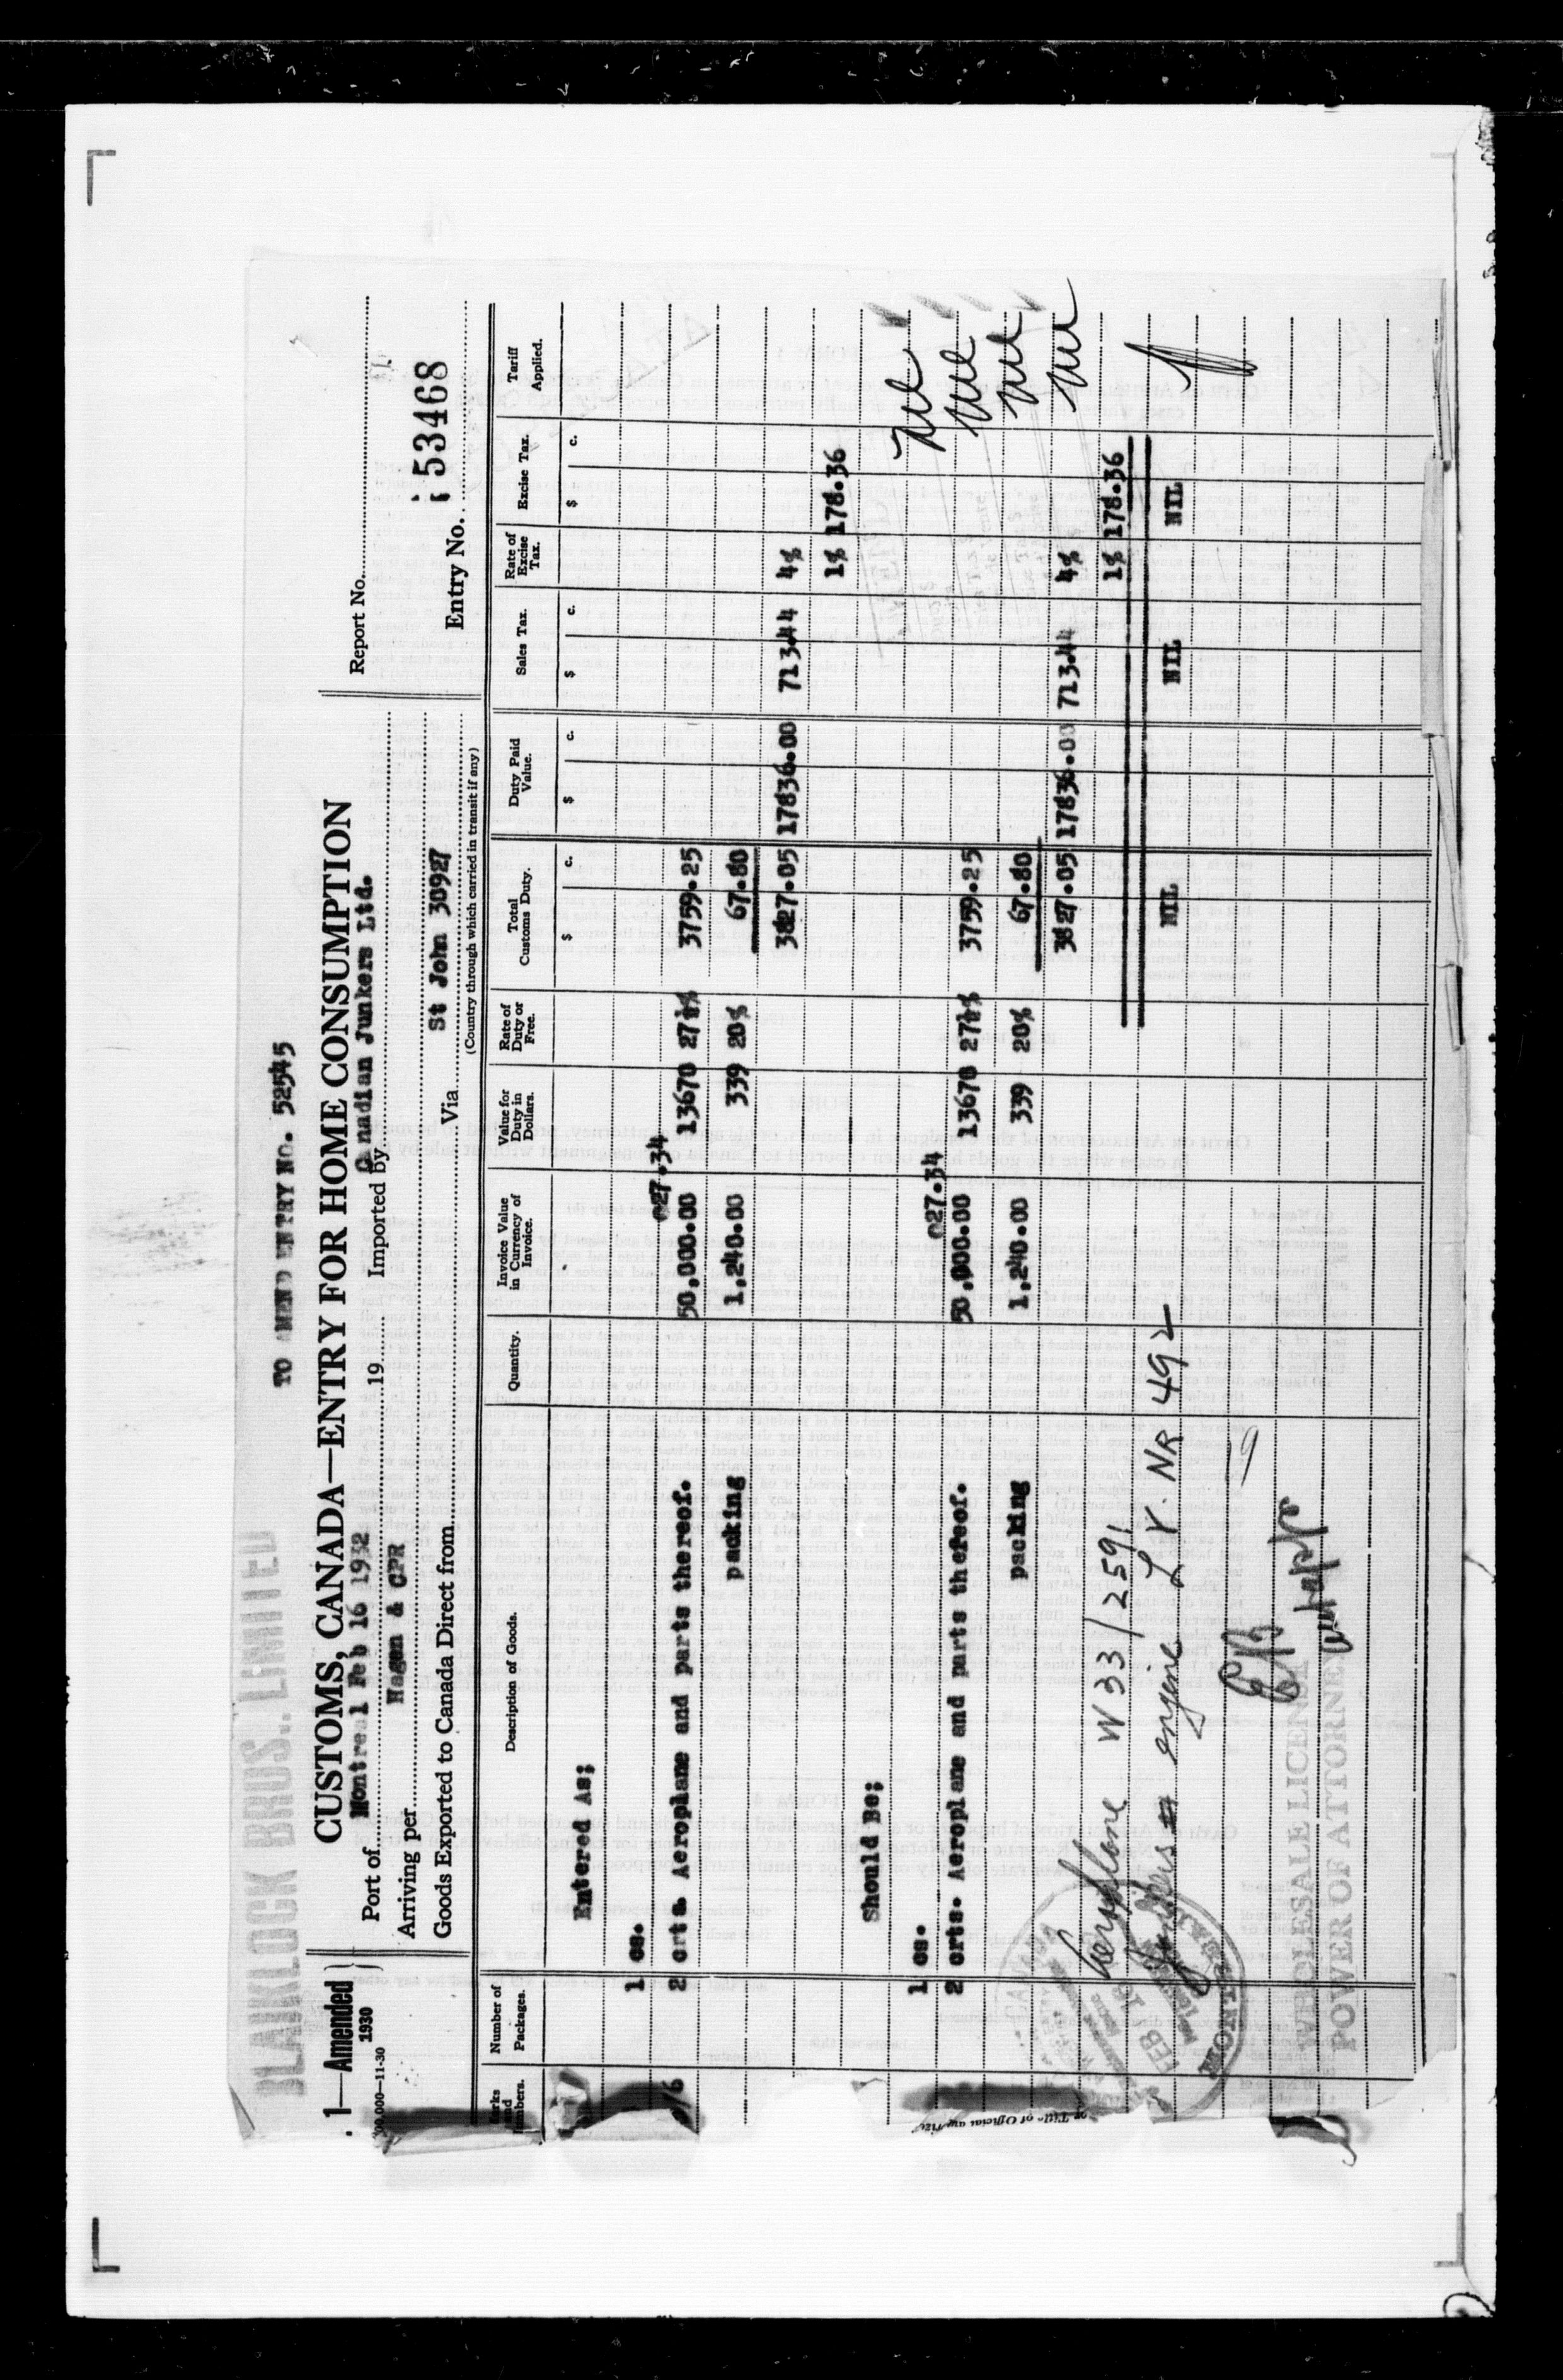 BLAIKLOCK BROS., LIMITED
TO AMEND ENTRY NO. 52545
1—Amended
1930
CUSTOMS, CANADA—ENTRY FOR HOME CONSUMPTION
Port of Montreal Feb 16 1932 19 Imported by Canadian Junkers Ltd.
Report No.
300,000—11-30
Arriving per Hagen & CPR
Goods Exported to Canada Direct from Via St John 30927
Entry No. 153468
(Country through which carried in transit if any)
Marks and Numbers. Number of Packages. Description of Goods. Quantity. Invoice Value in Currency of Invoice. Value for Duty in Dollars. Rate of Duty or Free. Total Customs Duty. Duty Paid Value. Sales Tax. Rate of Excise Tax. Excise Tax. Tariff Applied.
$ c. $ c. $ c. $ c.
Entered As;
1 cs.
@27.34
2 crts. Aeroplane and parts thereof. 50,000.00 13670 27½% 3759.25
packing 1,240.00 339 20% 67.80
3827.05 17836.00 713.44 4%
1% 178.36
Should Be;
1 cs.
@27.34
2 crts. Aeroplane and parts thereof. 50,000.00 13670 27½% 3759.25
packing 1,240.00 339 20% 67.80
3827.05 17836.00 713.44 4%
Aeroplane W 33 / 2591
1% 178.36
Junkers engine L V. NR 492
NIL NIL NIL
FEB 16
MONTREAL
WHOLESALE LICENSE
POWER OF ATTORNEY